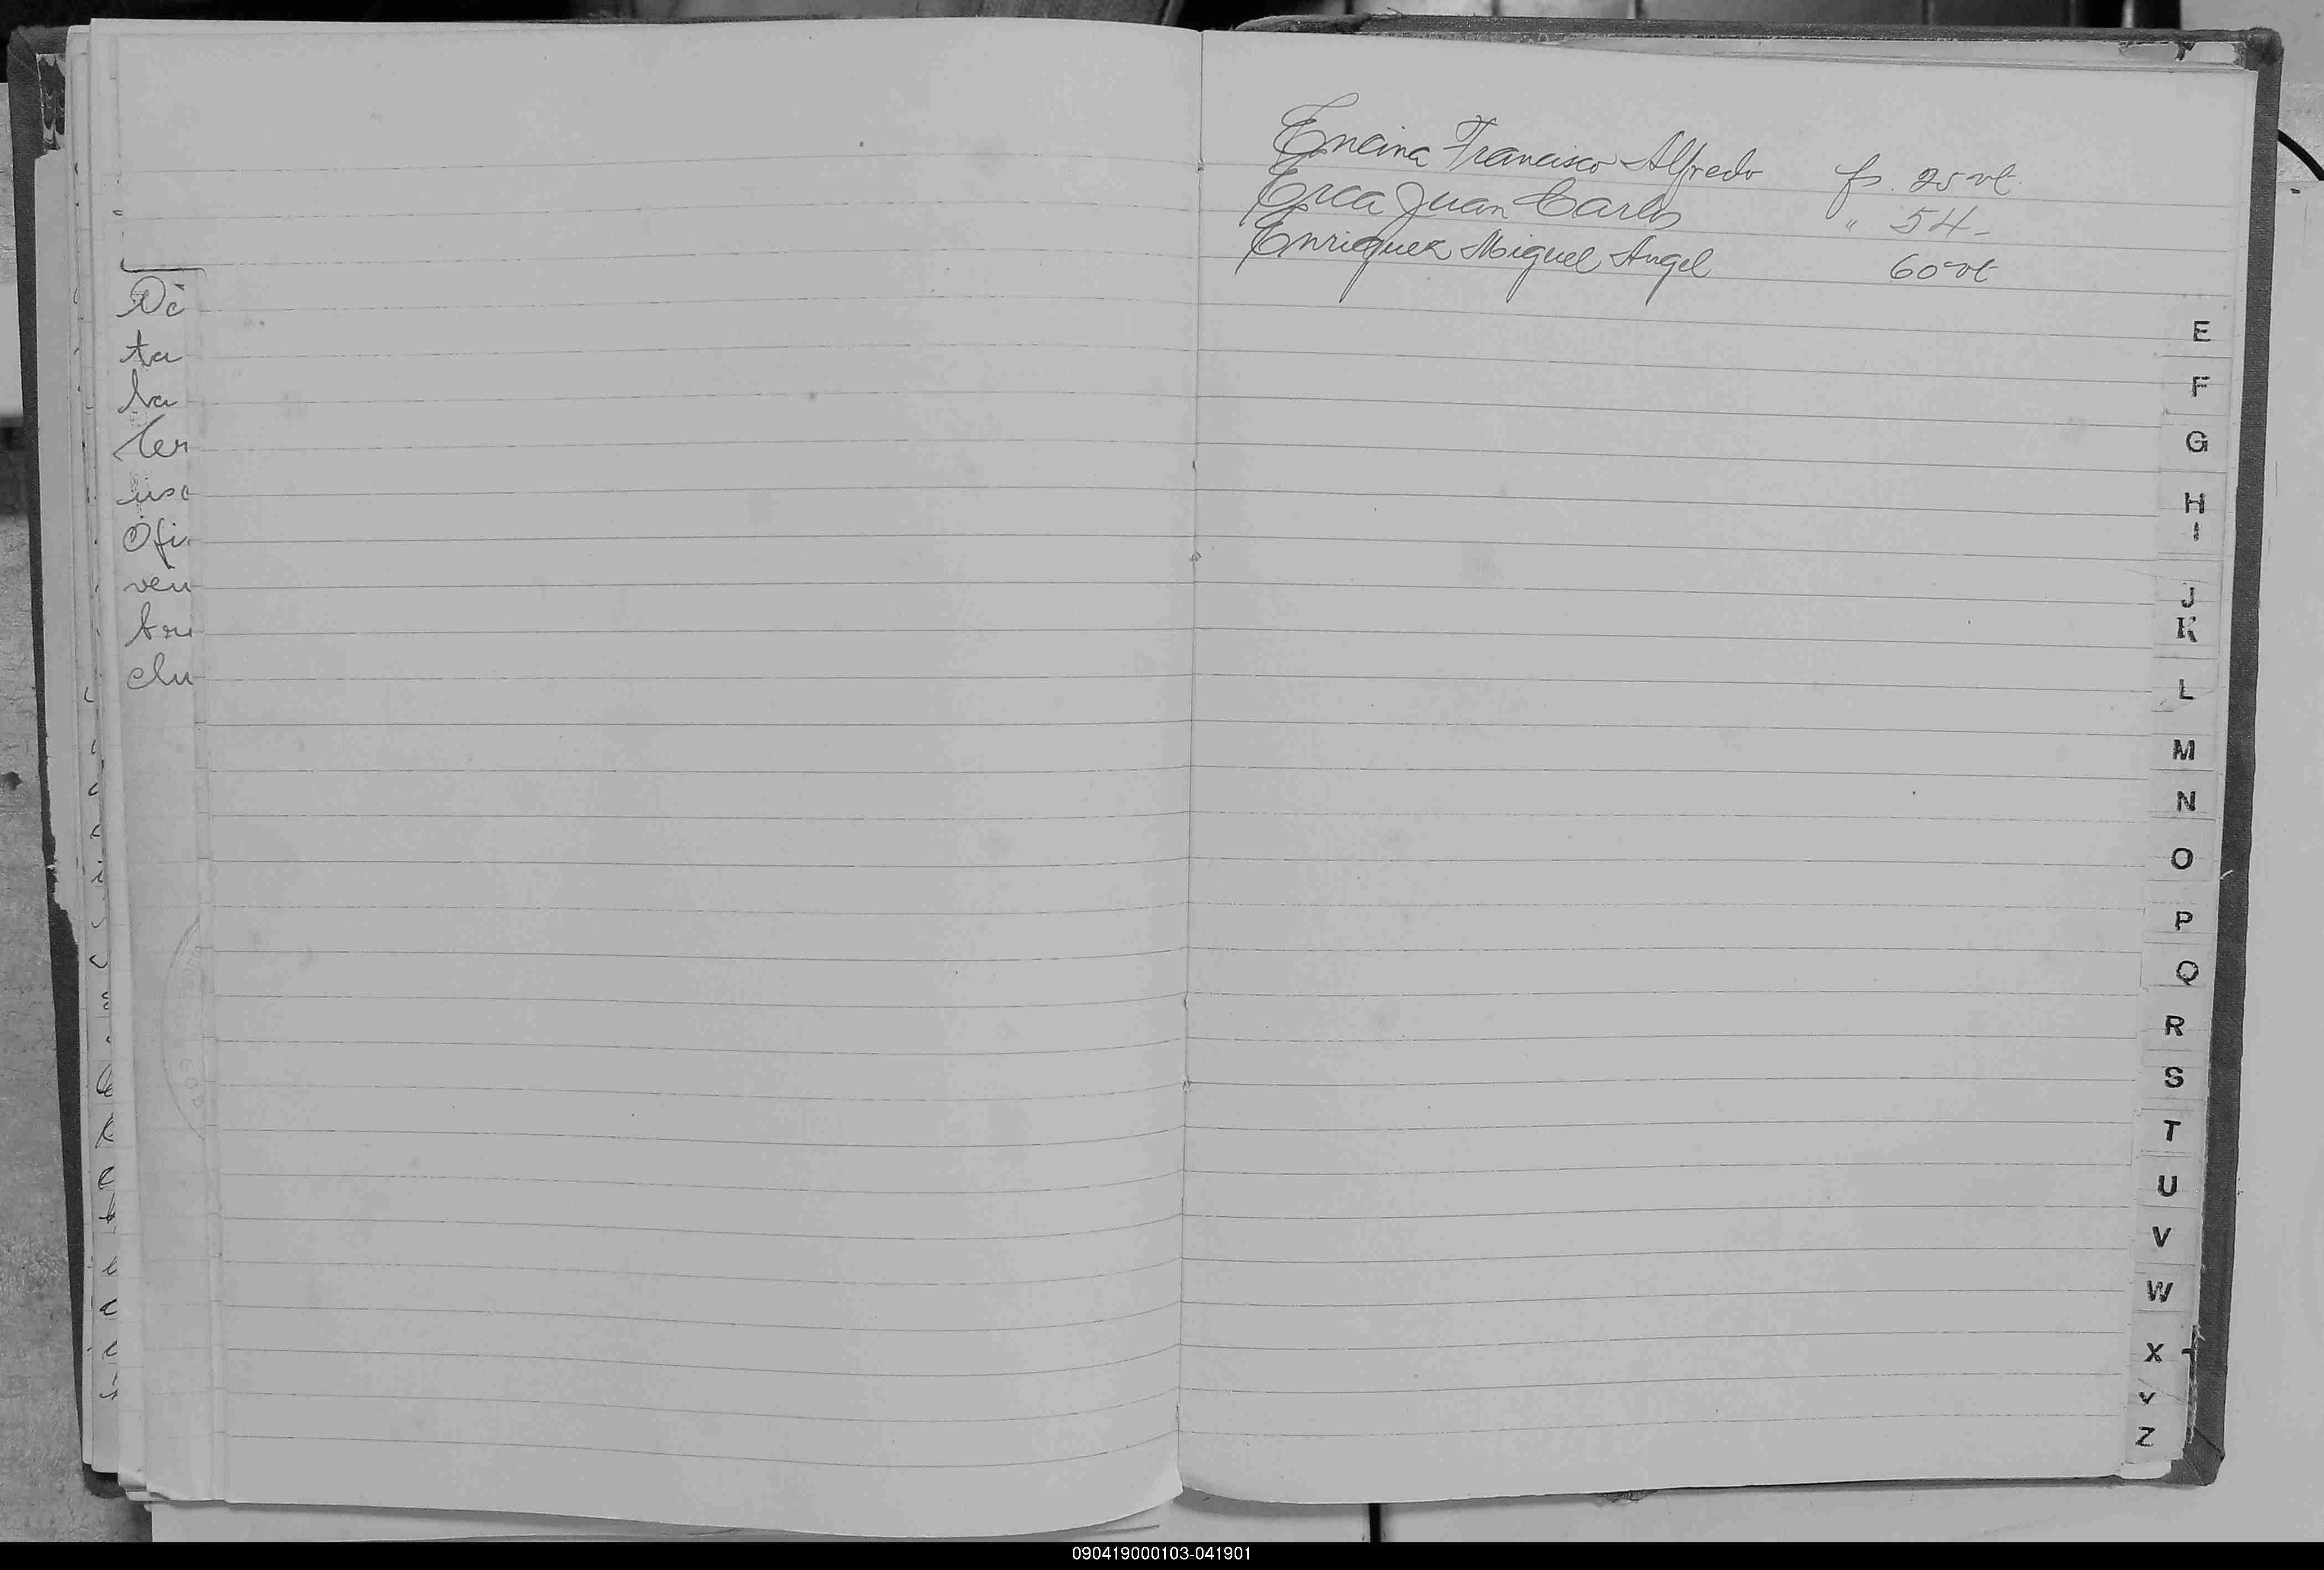 Dè
ta
la
ter
uso
Ofi
ven
bru
clu
Encina Francisco Alfredo fs. 25 vt.
Erca Juan Carlos " 54-
Enriquez Miguel Angel 60 vt
E
F
G
H
I
J
K
L
M
N
O
P
Q
R
S
T
U
V
W
X
Y
Z
090419000103-041901